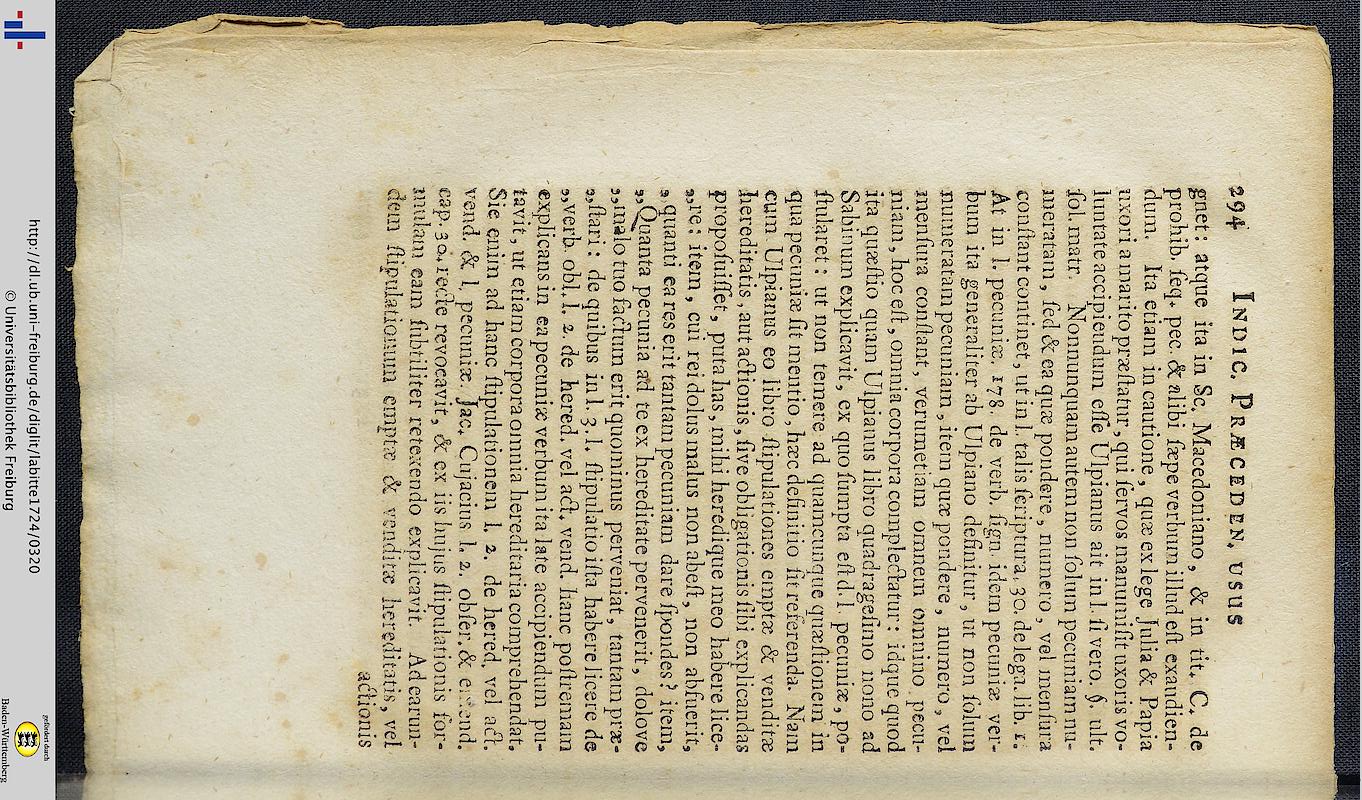 294 INDIC. PRÆCEDEN. USUS
gnet: atque ita in Sc. Macedoniano, & in tit. C. de
prohib. ſeq. pec. & alibi ſæpe verbum illud eſt exaudien-
dum. Ita etiam in cautione, quæ ex lege Julia & Papia
uxori a marito præſtatur, qui ſervos manumiſit uxoris vo-
luntate accipiendum eſſe Ulpianus ait in l. ſi vero. §. ult.
ſol. matr. Nonnunquam autem non ſolum pecuniam nu-
meratam, ſed & ea quæ pondere, numero, vel menſura
conſtant continet, ut in l. talis ſcriptura. 30. de lega. lib. 1.
At in l. pecuniæ. 178. de verb. ſign. idem pecuniæ ver-
bum ita generaliter ab Ulpiano definitur, ut non ſolum
numeratam pecuniam, item quæ pondere, numero, vel
menſura conſtant, verum etiam omnem omnino pecu-
niam, hoc eſt, omnia corpora complectatur: idque quod
ita quæſtio quam Ulpianus libro quadrageſimo nono ad
Sabinum explicavit, ex quo ſumpta eſt d. l. pecuniæ, po-
ſtularet: ut non temere ad quamcunque quæſtionem in
qua pecuniæ fit mentio, hæc definitio ſit referenda. Nam
cum Ulpianus eo libro ſtipulationes emptæ & venditæ
hereditatis, aut actionis, ſive obligationis ſibi explicandas
propoſuiſſet, puta has, mihi heredique meo habere lice-
„re: item, cui rei dolus malus non abeſt, non abfuerit,
„quanti ea res erit tantam pecuniam dare ſpondes? item,
„Quanta pecunia ad te ex hereditate pervenerit, dolove
„malo tuo factum erit quominus perveniat, tantam præ-
„ſtari: de quibus in l. 3. l. ſtipulatio iſta habere licere de
„verb. obl. l. 2. de hered. vel act. vend. hanc poſtremam
explicans in ea pecuniæ verbum ita late accipiendum pu-
tavit, ut etiam corpora omnia hereditaria comprehendat.
Sic enim ad hanc ſtipulationem l. 2. de hered. vel act.
vend. & l. pecuniæ. Jac. Cujacius l. 2. obſer. & emend.
cap. 30. recte revocavit, & ex iis hujus ſtipulationis for-
mulam eam ſubtiliter retexendo explicavit. Ad earun-
dem ſtipulationum emptæ & venditæ hereditatis, vel
actionis
http://dl.ub.uni-freiburg.de/diglit/labitte1724/0320
© Universitätsbibliothek Freiburg
gefördert durch
Baden-Württemberg